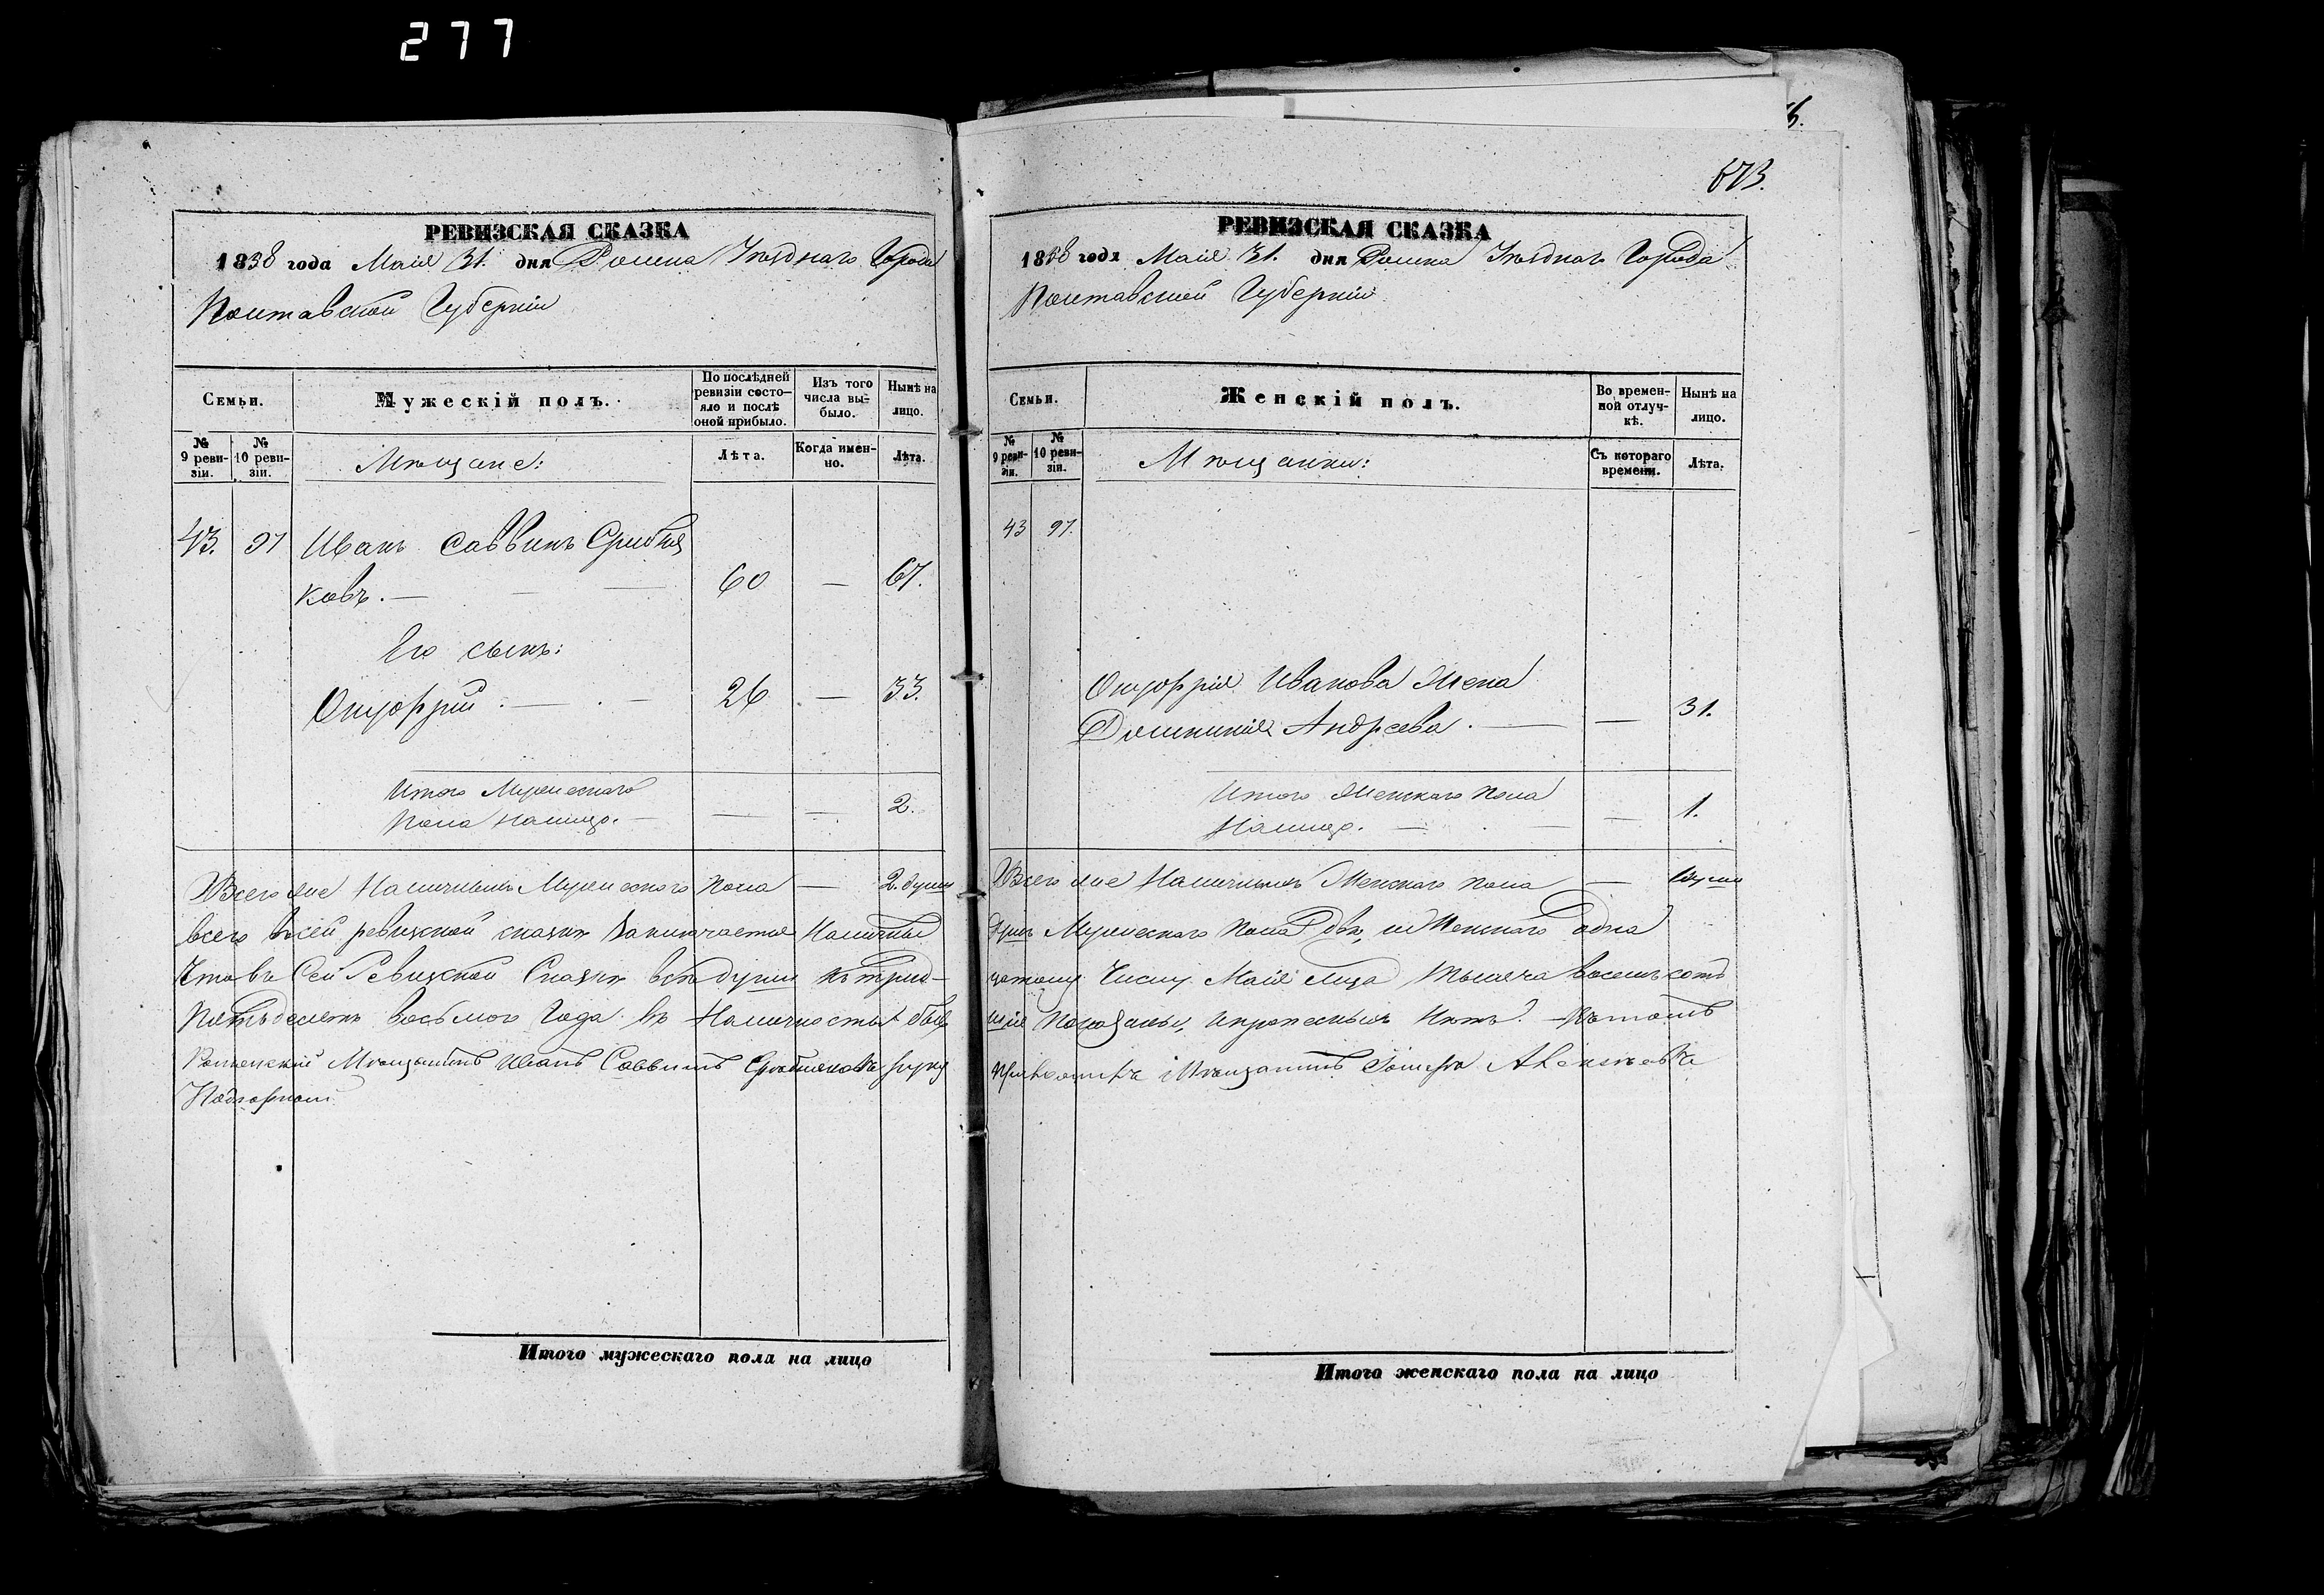 277
673.
РЕВИЗСКАЯ СКАЗКА
1858 года Маія 31. дня Ромна Уѣзднаго Города
Полтавской Губерніи
Семьи.
Мужескій полъ.
По послѣдней ревизіи состояло и послѣ оной прибыло.
Изъ того числа выбыло.
Нынѣ на лицо.
№ 9 ревизіи.
№ 10 ревизіи.
Мѣщане:
Лѣта.
Когда именно.
Лѣта.
43. 97 Иванъ Саввинъ
ковъ. — 60 — 67.
Его сынъ:
Онуфрій — 26 — 33.
Итого Мужескаго
Пола Налицо. — — — 2.
Всего же Наличныхъ Мужескаго пола — 2. души
всего въ сей ревизской сказкѣ Заключается Наличныхъ
Что въ Сей Ревизской Сказкѣ всѣ души къ трид-
Пятьдесятъ восьмого Года въ Наличности
Роменскій Мѣщанинъ Иванъ Саввинъ
Итого мужескаго пола на лицо
РЕВИЗСКАЯ СКАЗКА
1858 года Маія 31. дня Ромна Уѣзднаго Города
Полтавской Губерніи
Семьи.
Женскій полъ.
Во временной отлучкѣ.
Нынѣ на лицо.
№ 9 ревизіи.
№ 10 ревизіи.
Мѣщанки:
Съ котораго времени.
Лѣта.
43 97.
Онуфрія Иванова Жена
Андреева. — — 31.
Итого Женскаго Пола
Налицо. — — 1.
Всего же Наличныхъ Женскаго пола — 1 душа
Душъ Мужескаго Пола Двѣ, и Женскаго Одна
цатому Числу Маія Тысяча восемьсотъ
Показаны, и прописныхъ Нѣтъ.
Мѣщанинъ
Итого женскаго пола на лицо